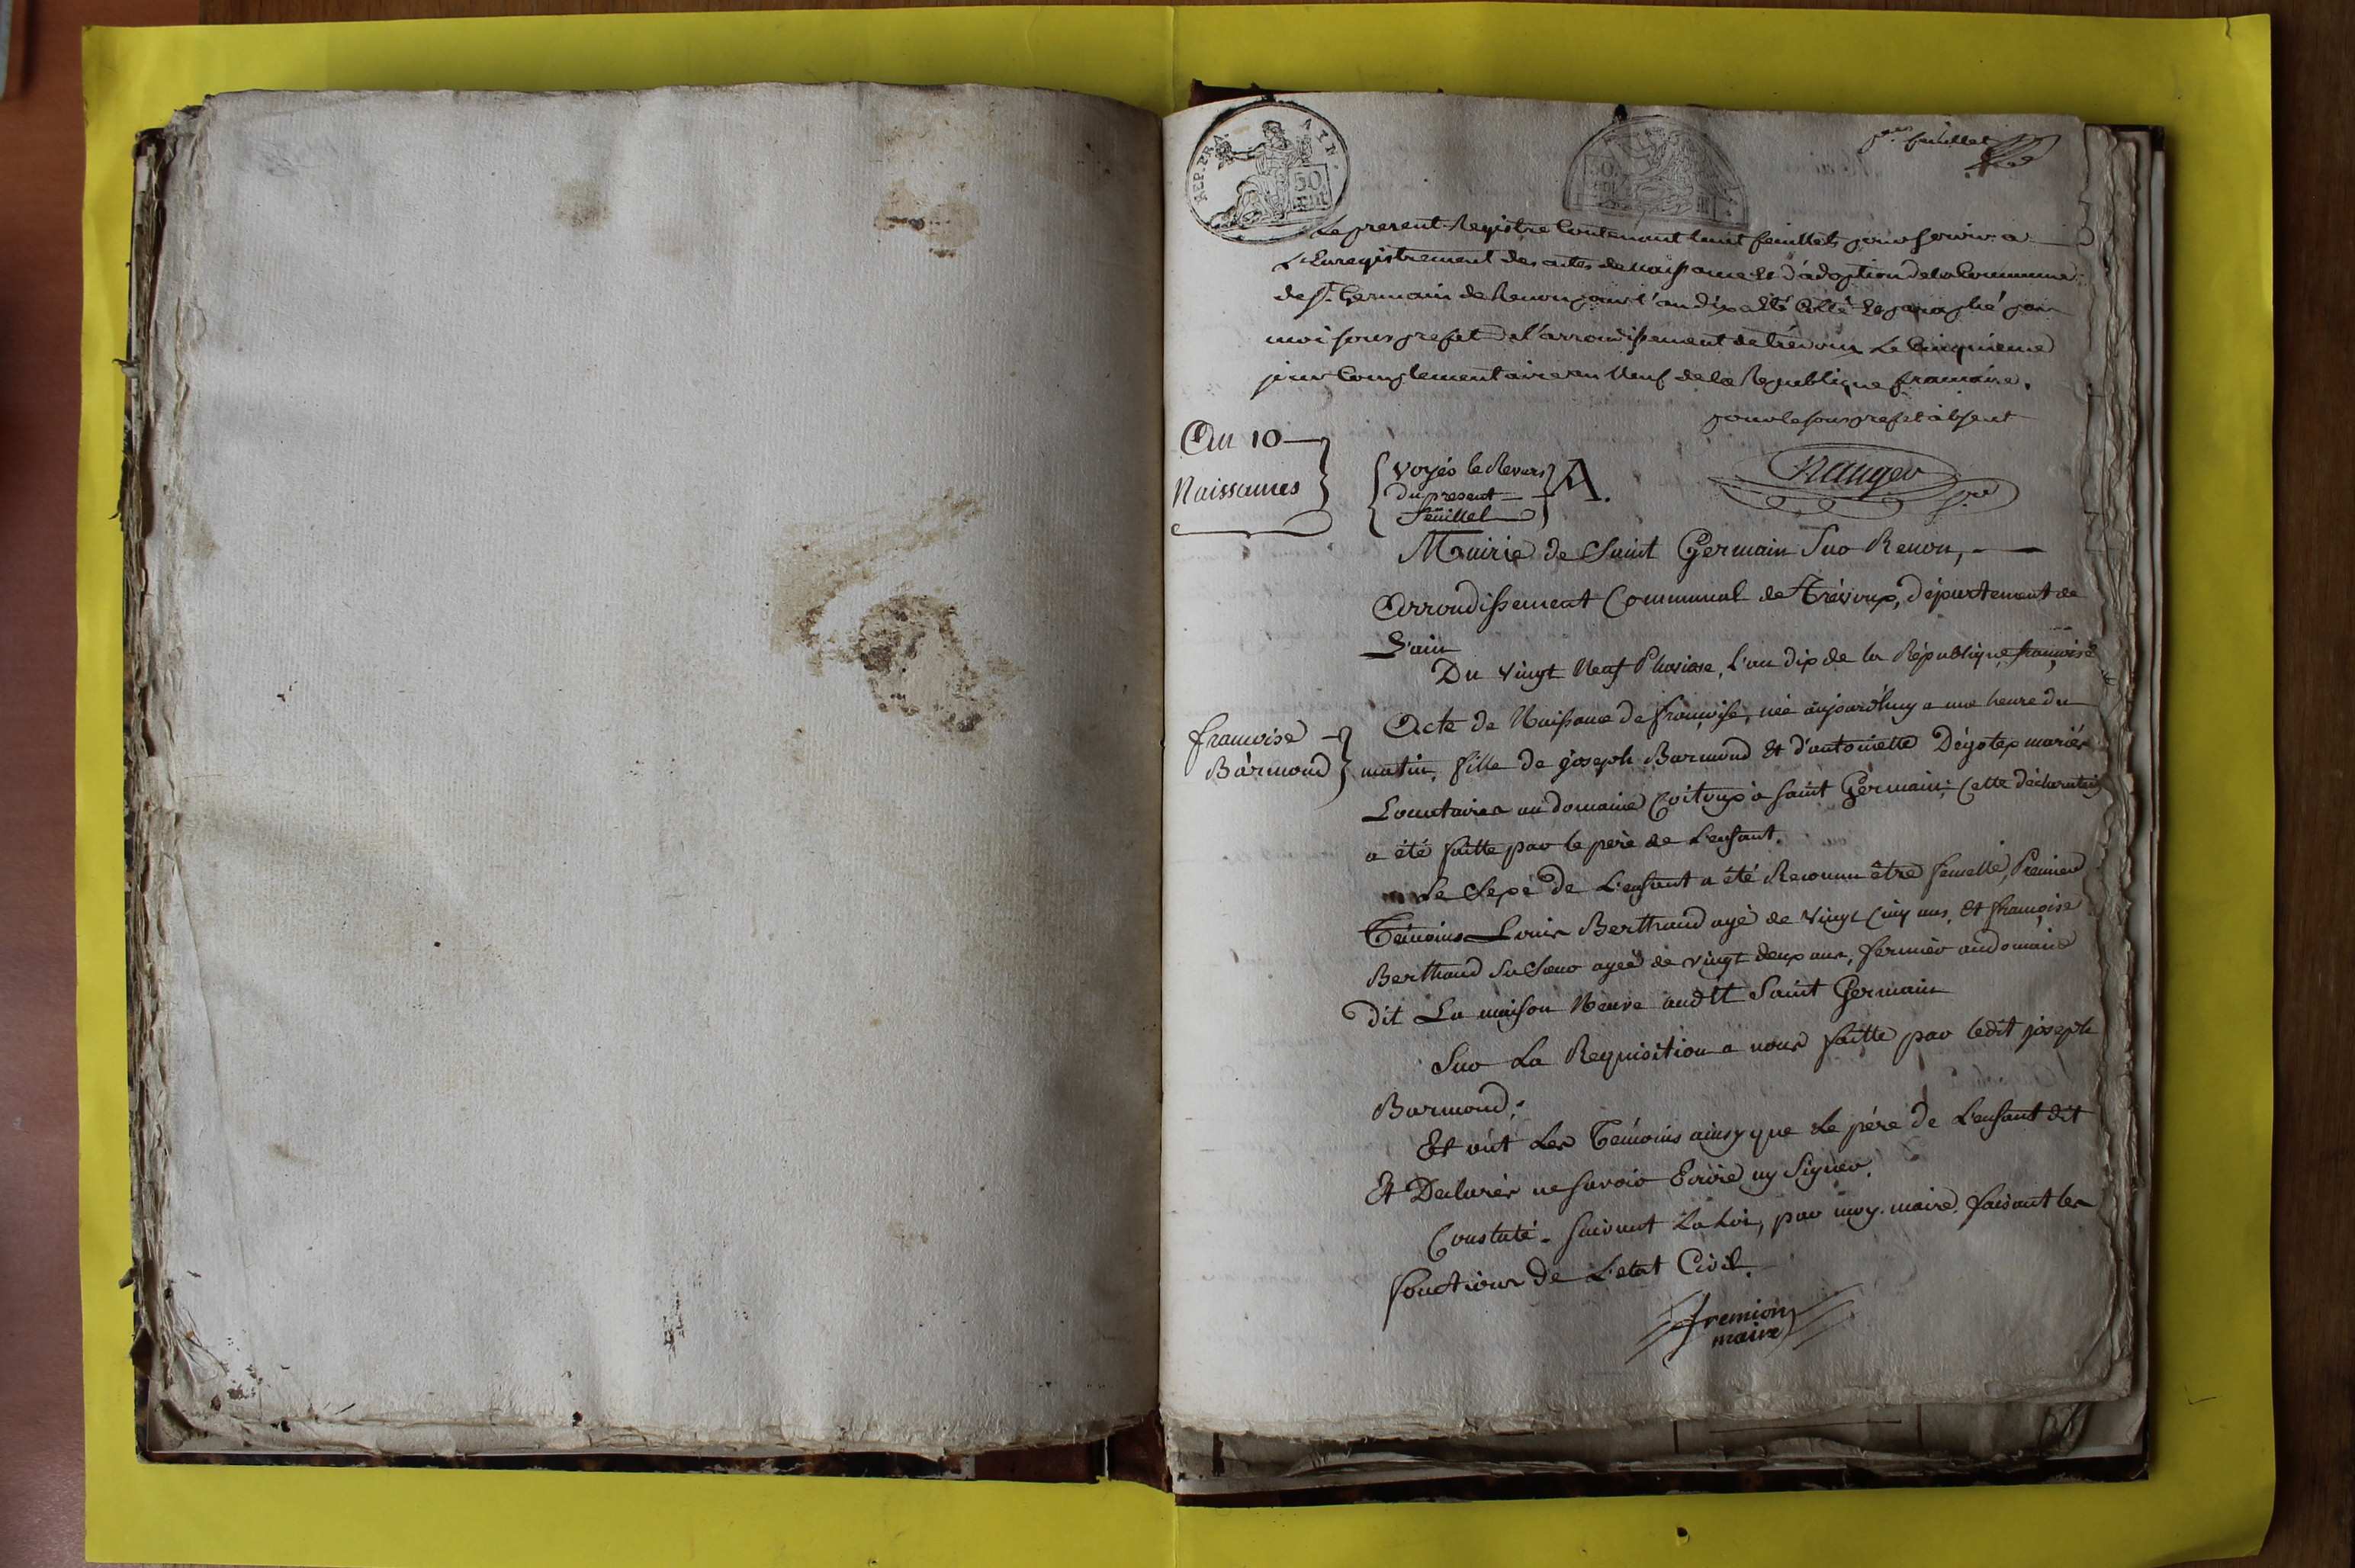 REP. FRA. AIN.
50
per feuillet
Le present Registre Contenant huit feuillets pour servir a
L'Enregistrement des actes de naissance et d'adoption de la Commune
de St. Germain de Renon pour l'an dix a été Cotté et paraphé par
moi sous prefet de l'arrondissement de trévoux Le Cinquieme
jour Complementaire an Neuf de la Republique francaise.
pour le sous prefet absent
An 10
Naissances
Voyés le Revers
du present
feuillet
A.
Mairie de Saint Germain Sur Renon,
Arrondissement Communal de Trévoux, département de
L'ain
Du vingt Neuf Pluviose, L'an dix de la République françoise
francoise
Barmond
Acte de Naissance de françoise, née aujourd'huy a une heure du
matin, fille de joseph Barmond Et d'antoinette Dégotex mariés
Locataires au domaine Coitoux a saint Germain; Cette déclaration
a été faitte par le pere de L'enfant.
Le Sexe de L'enfant a été Reconnu être femelle, Premier
Témoins Louis Berthaud agé de vingt Cinq ans, Et françoise
Berthaud Sa Sœur agée de vingt deux ans, fermier au domaine
dit La maison Neuve audit Saint Germain
Sur La Requisition a nous faitte par ledit joseph
Barmond;
Et ont Les Témoins ainsy que Le pére de L'enfant dit
Et Declarér ne savoir Ecrire ny Signer.
Constaté suivant La Loi, par moy maire faisant les
fonctions de L'etat Civil.
fremion
maire